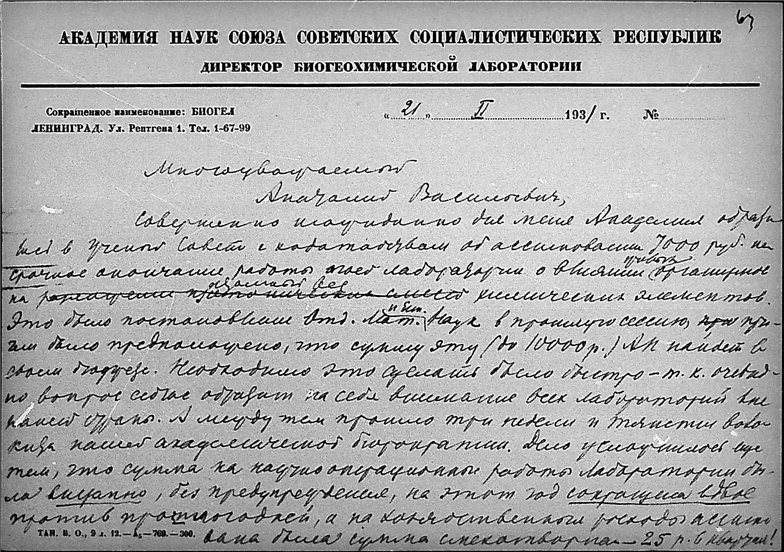 63
АКАДЕМИЯ НАУК СОЮЗА СОВЕТСКИХ СОЦИАЛИСТИЧЕСКИХ РЕСПУБЛИК
ДИРЕКТОР БИОГЕОХИМИЧЕСКОЙ ЛАБОРАТОРИИ
Сокращенное наименование: БИОГЕЛ
ЛЕНИНГРАД. Ул. Рентгена 1. Тел. 1-67-99
„ 21 " II 1931 г. №
Многоуважаемый
Анатолий Васильевич,
Совершенно неожиданно для меня Академия обрати-
лась в Ученый Совет с ходатайством об ассигновании 7000 руб. на
срочное окончание работы моей лаборатории о влиянии
на химических элементов.
Это было постановление Отд. Мат. Наук в прошлую сессию, при-
чем было предположено, что сумму эту (до 10000 р.) АН найдет в
своем бюджете. Необходимо это сделать было быстро – т. к. очевид-
но вопрос сейчас обратит на себя внимание всех лабораторий вне
нашей страны. А между тем прошло три недели и тянется воло-
кита нашей академической бюрократии. Дело усложнилось еще
тем, что сумма на научно операционные работы лаборатории бы-
ла внезапно, без предупреждения, на этот год сокращена вдвое
против, а на хозяйственные расходы ассигно-
вана была сумма смехотворная – 25 р. в квартал!
ТАН. В. О., 9 л. 12.—А₅—709.—300.